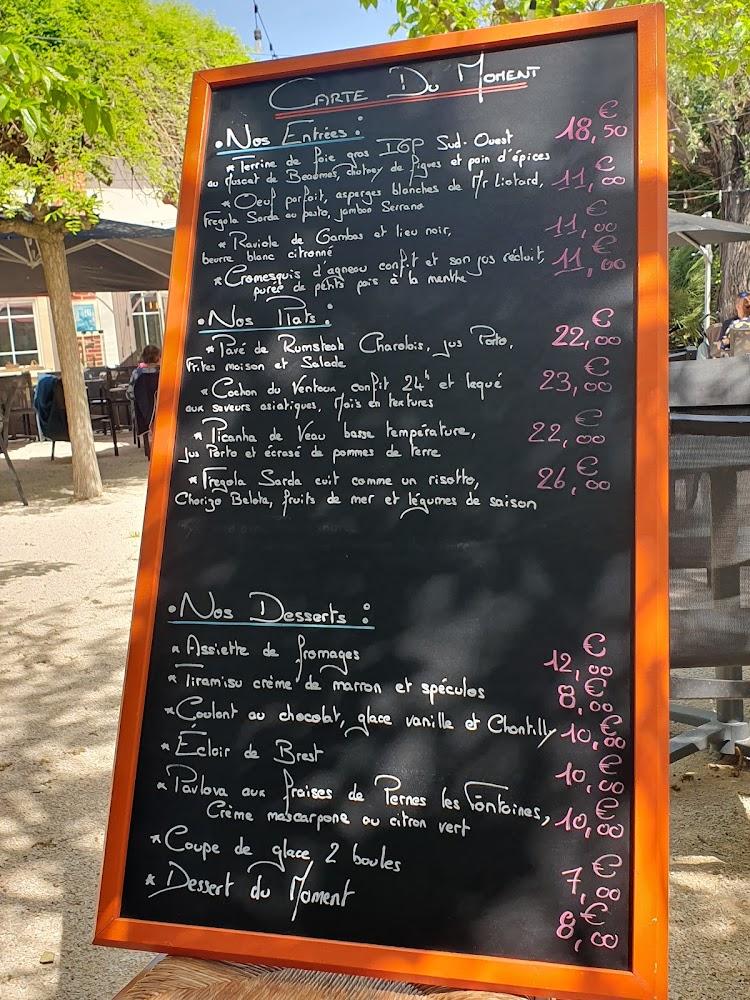 Carte Du Moment
• Nos Entrées :
* Terrine de foie gras IGP Sud-Ouest 18,50 €
au Muscat de Beaumes, chutney de figues et pain d'épices
* Oeuf parfait, asperges blanches de Mr Liotard, 11,00 €
Fregola Sarda au pesto, jambon Serrano
* Raviole de Gambas et lieu noir, 11,00 €
beurre blanc citronné
* Cromesquis d'agneau confit et son jus réduit, 11,00 €
purée de petits pois à la menthe
• Nos Plats :
* Pavé de Rumsteak Charolais, jus Porto, 22,00 €
Frites maison et Salade
* Cochon du Ventoux confit 24h et laqué 23,00 €
aux saveurs asiatiques, Maïs en textures
* Picanha de Veau basse température, 22,00 €
jus Porto et écrasé de pommes de terre
* Fregola Sarda cuit comme un risotto, 26,00 €
Chorizo Belota, fruits de mer et légumes de saison
• Nos Desserts :
* Assiette de fromages 12,00 €
* Tiramisu crème de marron et spéculos 8,00 €
* Coulant au chocolat, glace vanille et Chantilly 10,00 €
* Éclair de Brest 10,00 €
* Pavlova aux fraises de Pernes les Fontaines, 10,00 €
Crème mascarpone au citron vert
* Coupe de glace 2 boules 7,00 €
* Dessert du Moment 8,00 €